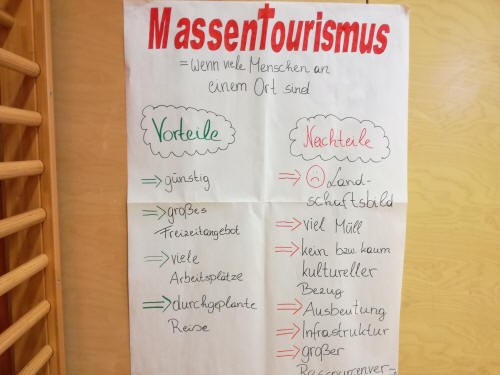 MassenTourismus
= wenn viele Menschen an
einem Ort sind
Vorteile
günstig
großes
Freizeitangebot
viele
Arbeitsplätze
durchgeplante
Reise
Nachteile
Land-
schaftsbild
viel Müll
kein bzw kaum
kultureller
Bezug
Ausbeutung
Infrastruktur
großer
Ressourcenver-